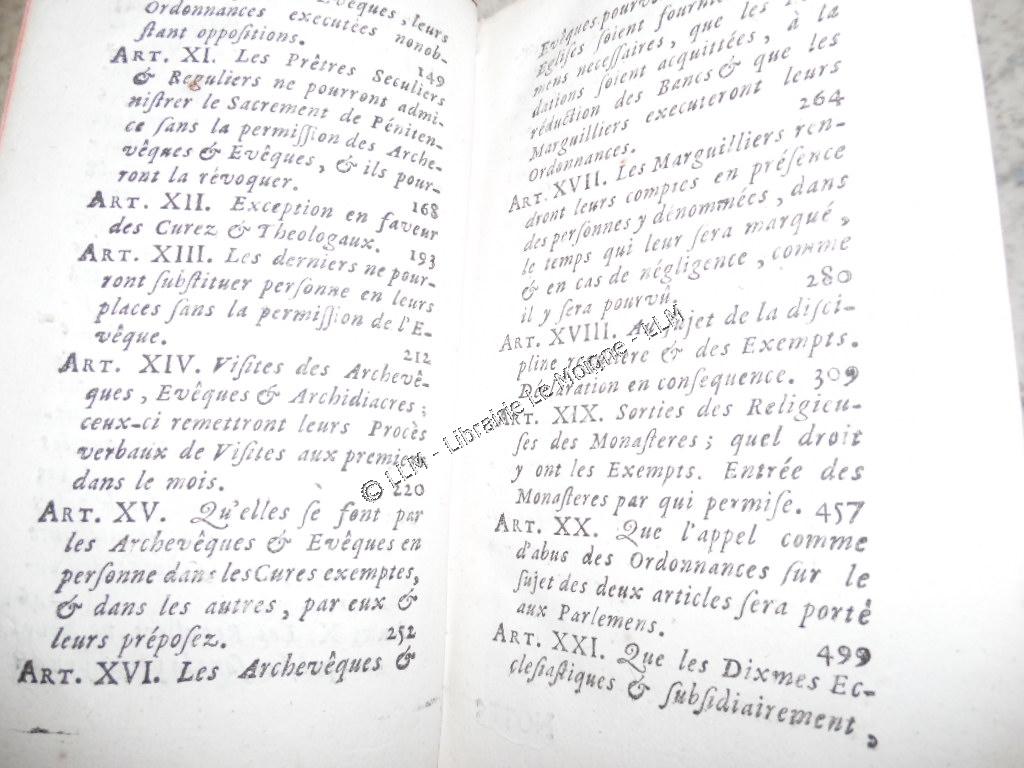 Evêques, leurs
Ordonnances executées nonob-
ſtant oppoſitions. 149
ART. XI. Les Prêtres Seculiers
& Reguliers ne pourront admi-
niſtrer le Sacrement de Péniten-
ce ſans la permiſſion des Arche-
vêques & Evêques, & ils pour-
ront la révoquer. 168
ART. XII. Exception en faveur
des Curez & Theologaux. 193
ART. XIII. Les derniers ne pour-
ront ſubſtituer perſonne en leurs
places ſans la permiſſion de l'E-
vêque. 212
ART. XIV. Viſites des Archevê-
ques, Evêques & Archidiacres;
ceux-ci remettront leurs Procès
verbaux de Viſites aux premiers
dans le mois. 220
ART. XV. Qu'elles ſe font par
les Archevêques & Evêques en
perſonne dans les Cures exemptes,
& dans les autres, par eux &
leurs prépoſez. 252
ART. XVI. Les Archevêques &
Evêques
Egliſes ſoient
mens neceſſaires, que les
dations ſoient acquittées, à la
réduction des Bancs & que les
Marguilliers executeront leurs
Ordonnances. 264
ART. XVII. Les Marguilliers ren-
dront leurs comptes en préſence
des perſonnes y dénommées, dans
le temps qui leur ſera marqué,
& en cas de négligence, comme
il y ſera pourvû. 280
ART. XVIII. Au ſujet de la diſci-
pline reguliere & des Exempts.
Déclaration en conſequence. 309
ART. XIX. Sorties des Religieu-
ſes des Monaſteres; quel droit
y ont les Exempts. Entrée des
Monaſteres par qui permiſe. 457
ART. XX. Que l'appel comme
d'abus des Ordonnances ſur le
ſujet des deux articles ſera porté
aux Parlemens. 499
ART. XXI. Que les Dixmes Ec-
cleſiaſtiques & ſubſidiairement,
© LLM - Librairie Le Moigne - LLM